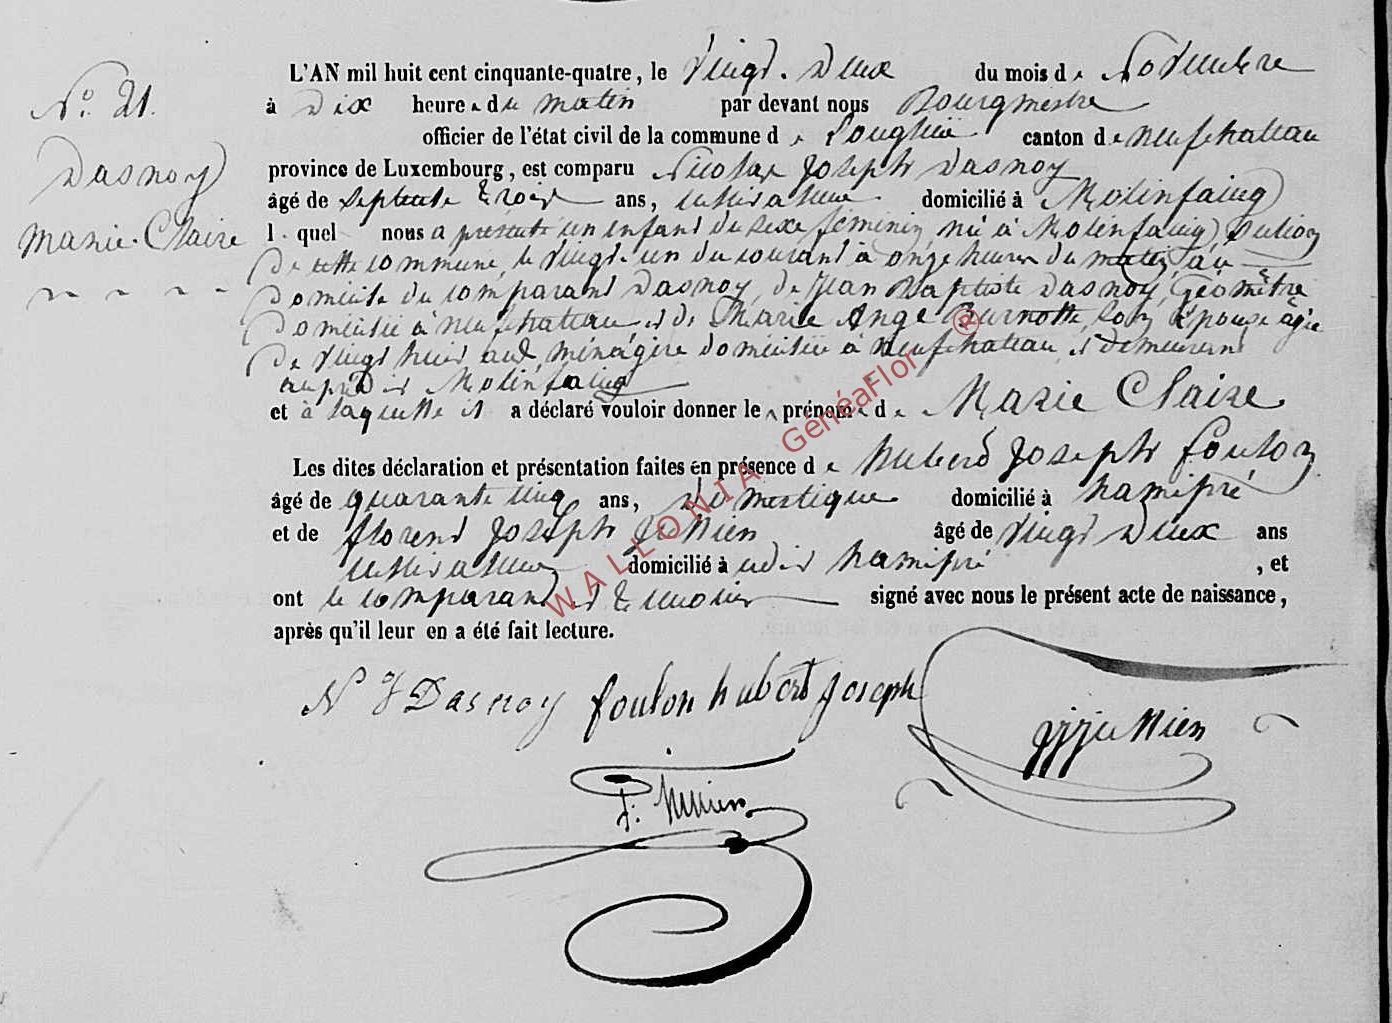 N° 21.
Dasnoy
Marie-Claire
L'AN mil huit cent cinquante-quatre, le vingt-Deux du mois de Novembre
à Dix heures du matin par devant nous Bourgmestre
officier de l'état civil de la commune de Longlier canton de neufchateau
province de Luxembourg, est comparu Nicolas Joseph Dasnoy
âgé de septante trois ans, cultivateur domicilié à Molinfaing
lequel nous a présenté un enfant du sexe féminin, né à Molinfaing, section
De cette commune, le vingt-un du courant à onze heures du matin, au
Domicile du comparant Dasnoy, de Jean Baptiste Dasnoy, Géomètre
Domicilié à neufchateau et de Marie Ange Burnotte, son épouse âgée
De vingt huit ans, ménagère domiciliée à neufchateau, et demeurant
au prédit Molinfaing
et à laquelle il a déclaré vouloir donner les prénoms de Marie Claire
Les dites déclaration et présentation faites en présence de hubert Joseph foulon
âgé de quarante cinq ans, domestique domicilié à hamipré
et de florent Joseph âgé de vingt Deux ans
cultivateur domicilié à udit hamipré, et
ont le comparant et témoins signé avec nous le présent acte de naissance,
après qu'il leur en a été fait lecture.
N J Dasnoy foulon hubert Joseph
WALLONIA GénéaFlor ®